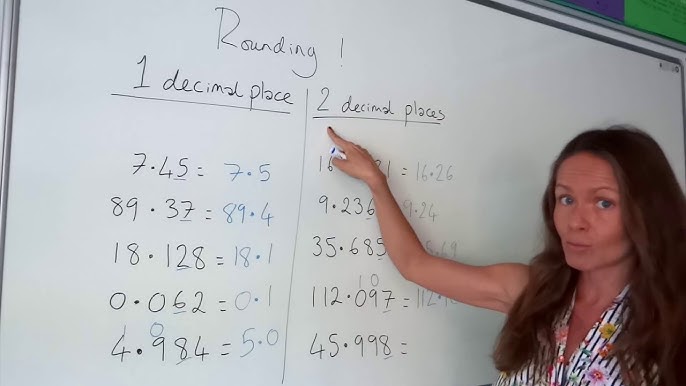 Rounding !
1 decimal place
7·45 = 7·5
89·37 = 89·4
18·128 = 18·1
0·062 = 0·1
1 0
4·984 = 5·0
2 decimal places
16 1 = 16·26
9·236 9·24
35·685 5·69
1 0
112·097 = 112·1
45·998 =